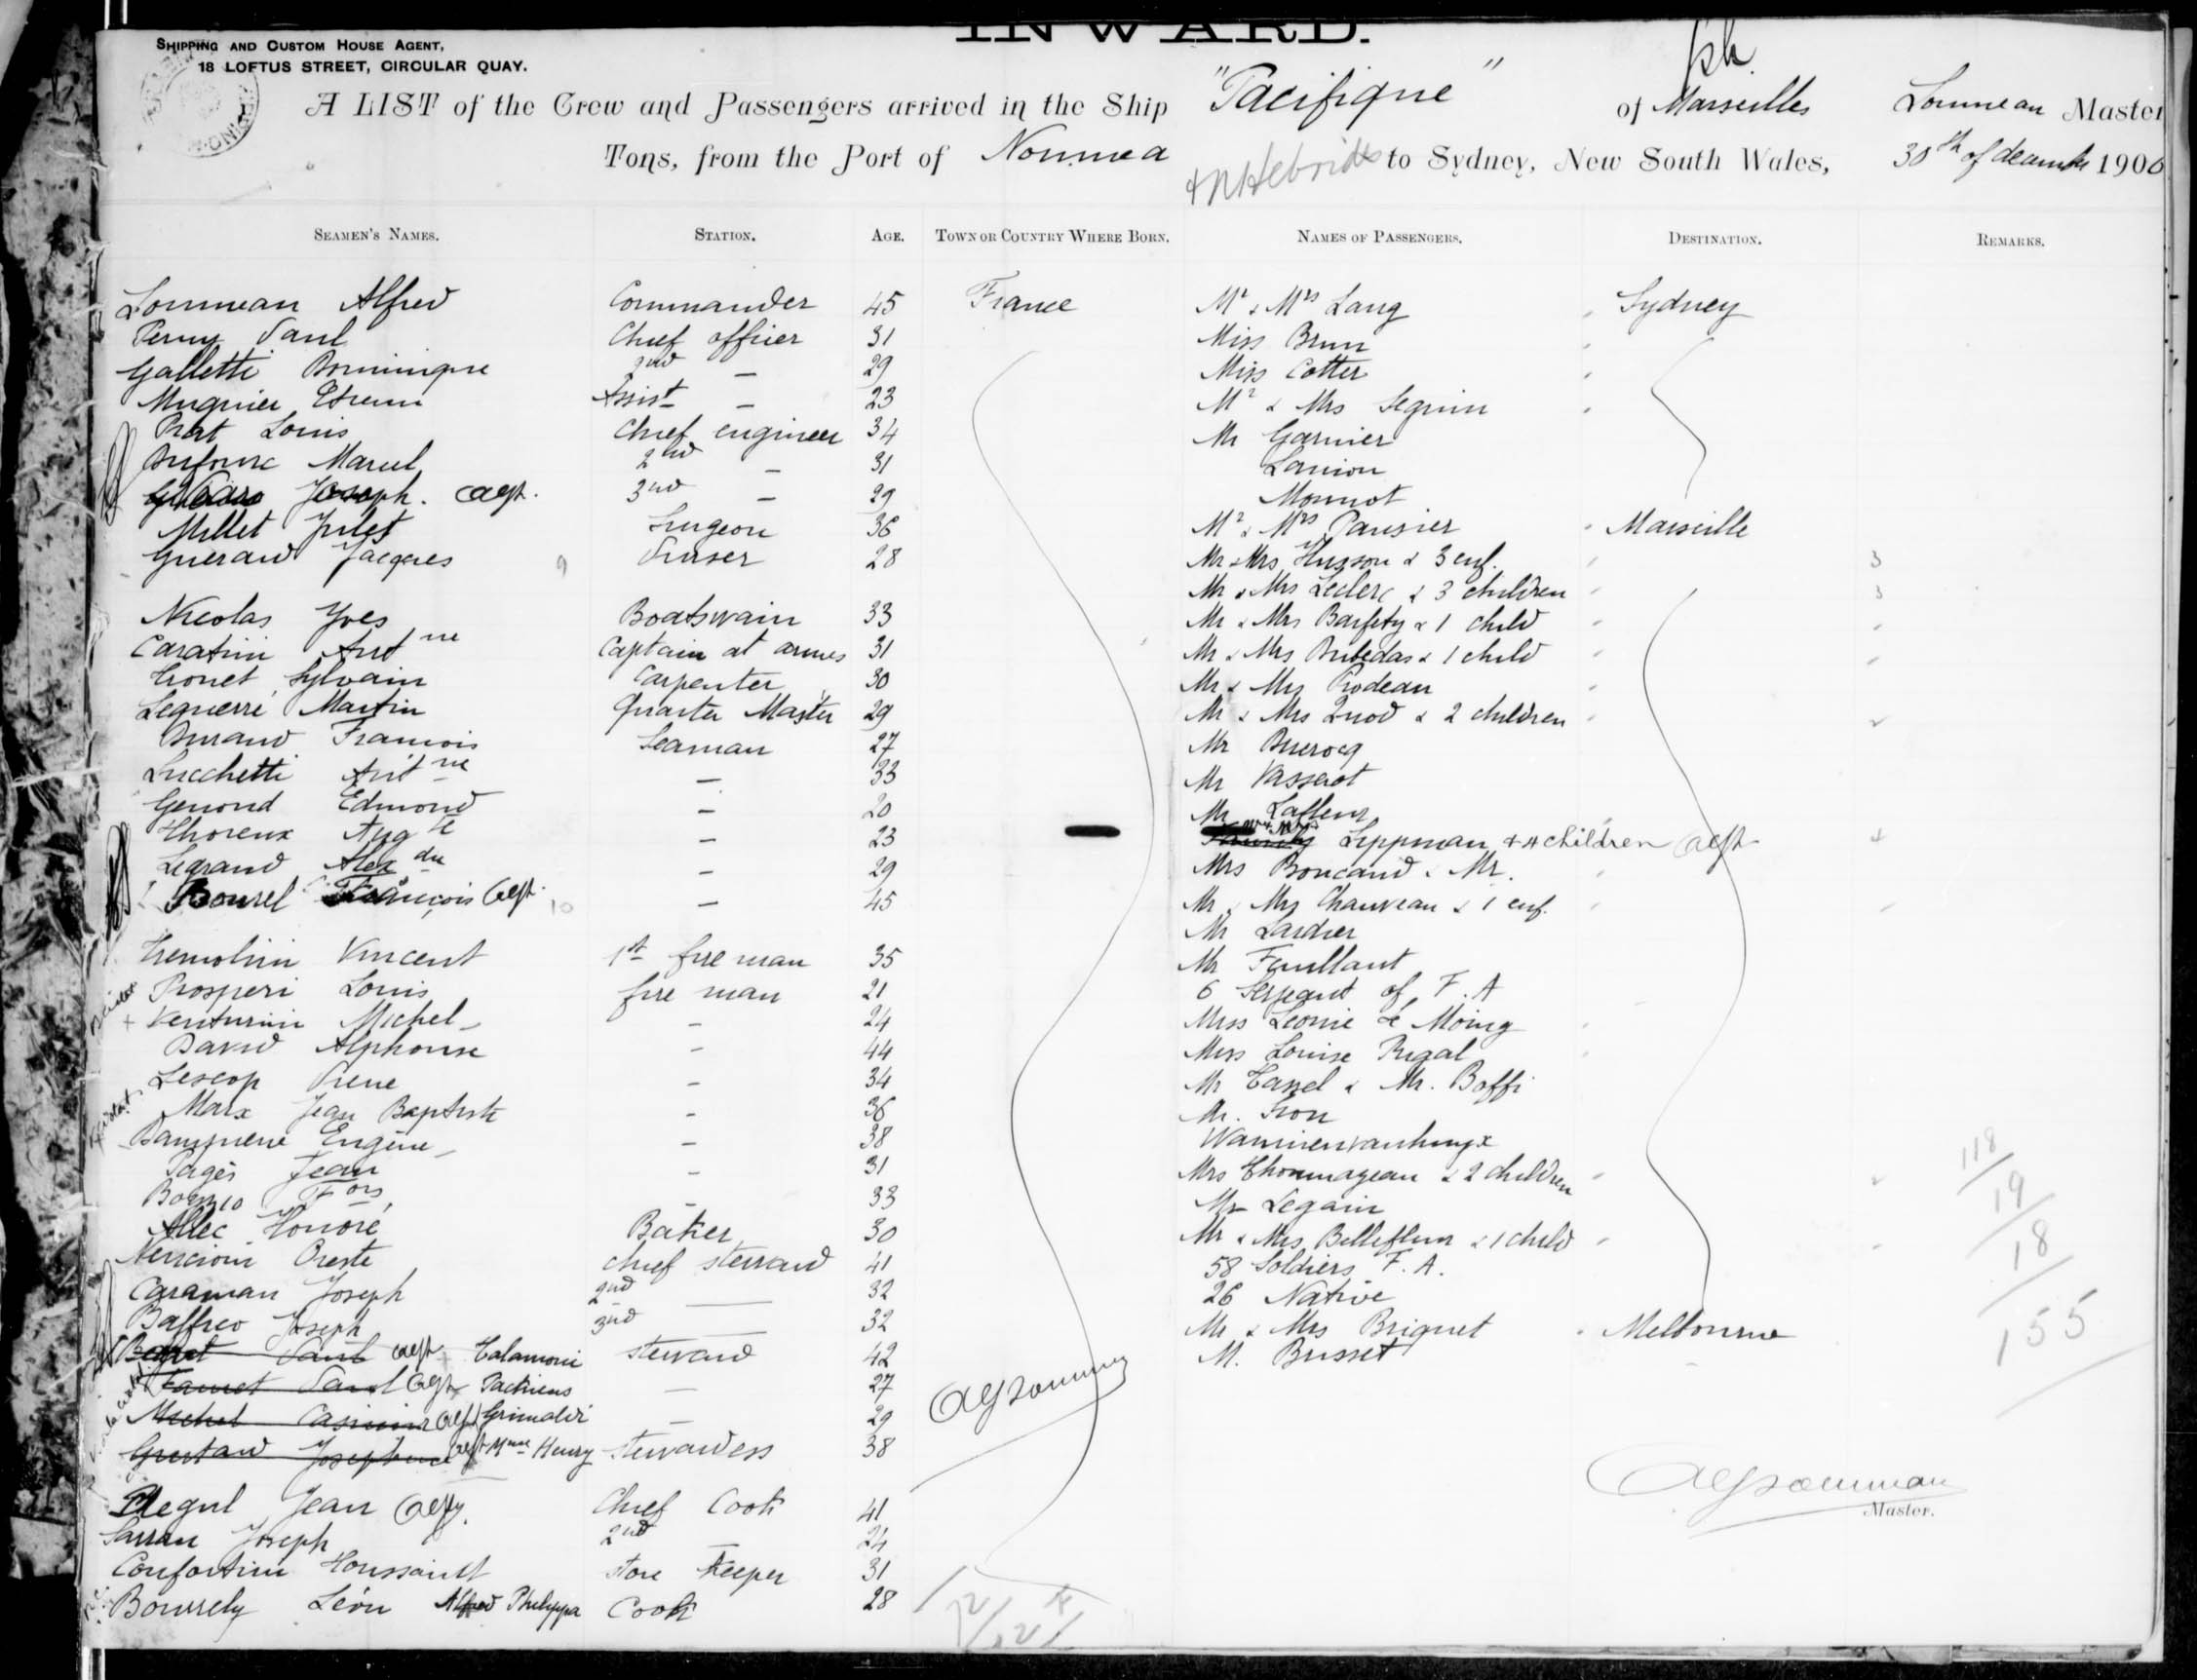 INWARD.
SHIPPING AND CUSTOM HOUSE AGENT,
18 LOFTUS STREET, CIRCULAR QUAY.
A LIST of the Crew and Passengers arrived in the Ship "Pacifique" of Marseilles Lommeau Master
Tons, from the Port of Noumea & N Hebrides to Sydney, New South Wales, 30th of decembre 1900
SEAMEN'S NAMES. STATION. AGE. TOWN OR COUNTRY WHERE BORN. NAMES OF PASSENGERS. DESTINATION. REMARKS.
Lommeau Alfred Commander 45 France Mr & Mrs Lang Sydney
Perny Paul Chief officer 31 Miss Brun
Galletti Dominique 2nd — 29 Miss Cotter
Mugnier Etienne Assist — 23 Mr & Mrs Seguin
Prat Louis Chief engineer 34 Mr Garnier
Dufourc Marcel 2nd — 31 Lanion
Joseph. 3rd — 29 Monnot
Millet Jules Surgeon 36 Mr & Mrs Pausier Marseille
Gueraud Jacques 9 Purser 28 Mr & Mrs Hugson & 3 enf. 3
Mr & Mrs Leclerc & 3 children 3
Nicolas Yves Boatswain 33 Mr & Mrs Barfety & 1 child
Caratini Antne Captain at armes 31 Mr & Mrs Dubedas & 1 child
Tronet Sylvain Carpenter 30 Mr & Mrs Prodeau
Leguerré Martin Quarter Master 29 Mr & Mrs Quod & 2 children 2
Durand Francois Seaman 27 Mr Buerocq
Lucchetti Antne — 33 Mr Vasserot
Genond Edmond — 20 Mr Lafleur
Thoreux Augte — 23 Mr & Mrs Lippman & 4 children 4
Legrand Alexdre — 29 Mrs Boucaud & Mr.
Bourel François 10 — 45 Mr & Mrs Chauveau & 1 enf.
Mr Lardier
Tremolini Vincent 1st fire man 35 Mr Feuillant
Prosperi Louis fire man 21 6 Sergeant of F. A
+ Venturini Michel — 24 Miss Leonie Le Moing
David Alphonse — 44 Miss Louise Rigal
Lescop Pierre — 34 Mr Cassel & Mr. Boffi
Marx Jean Baptiste — 36 Mr. Fron
Dampierre Eugène — 38
Pagès Jean — 31 Mrs Thoumazeau & 2 children
Fois — 33 Mr Legain
Allec Honoré Baker 30 Mr & Mrs Bellefleur & 1 child
Nerrcioni Oreste chief steward 41 58 Soldiers F. A.
Caraman Joseph 2nd — 32 26 Native
Baffreo Joseph 3rd — 32 Mr & Mrs Briquet Melbourne
Paul Talamoni steward 42 M. Brisset
Fauret Paul Pachiens — 27
Michel Casimir Grimaldi — 29
Gustaud Josephine Mme Henry stewardess 38
Plegul Jean Chief Cook 41
Master.
Sarran Joseph 2nd — 24
Confortini Toussaint store keeper 31
Bourrely Léon Alfred Philippa Cook 28
118
19
18
155